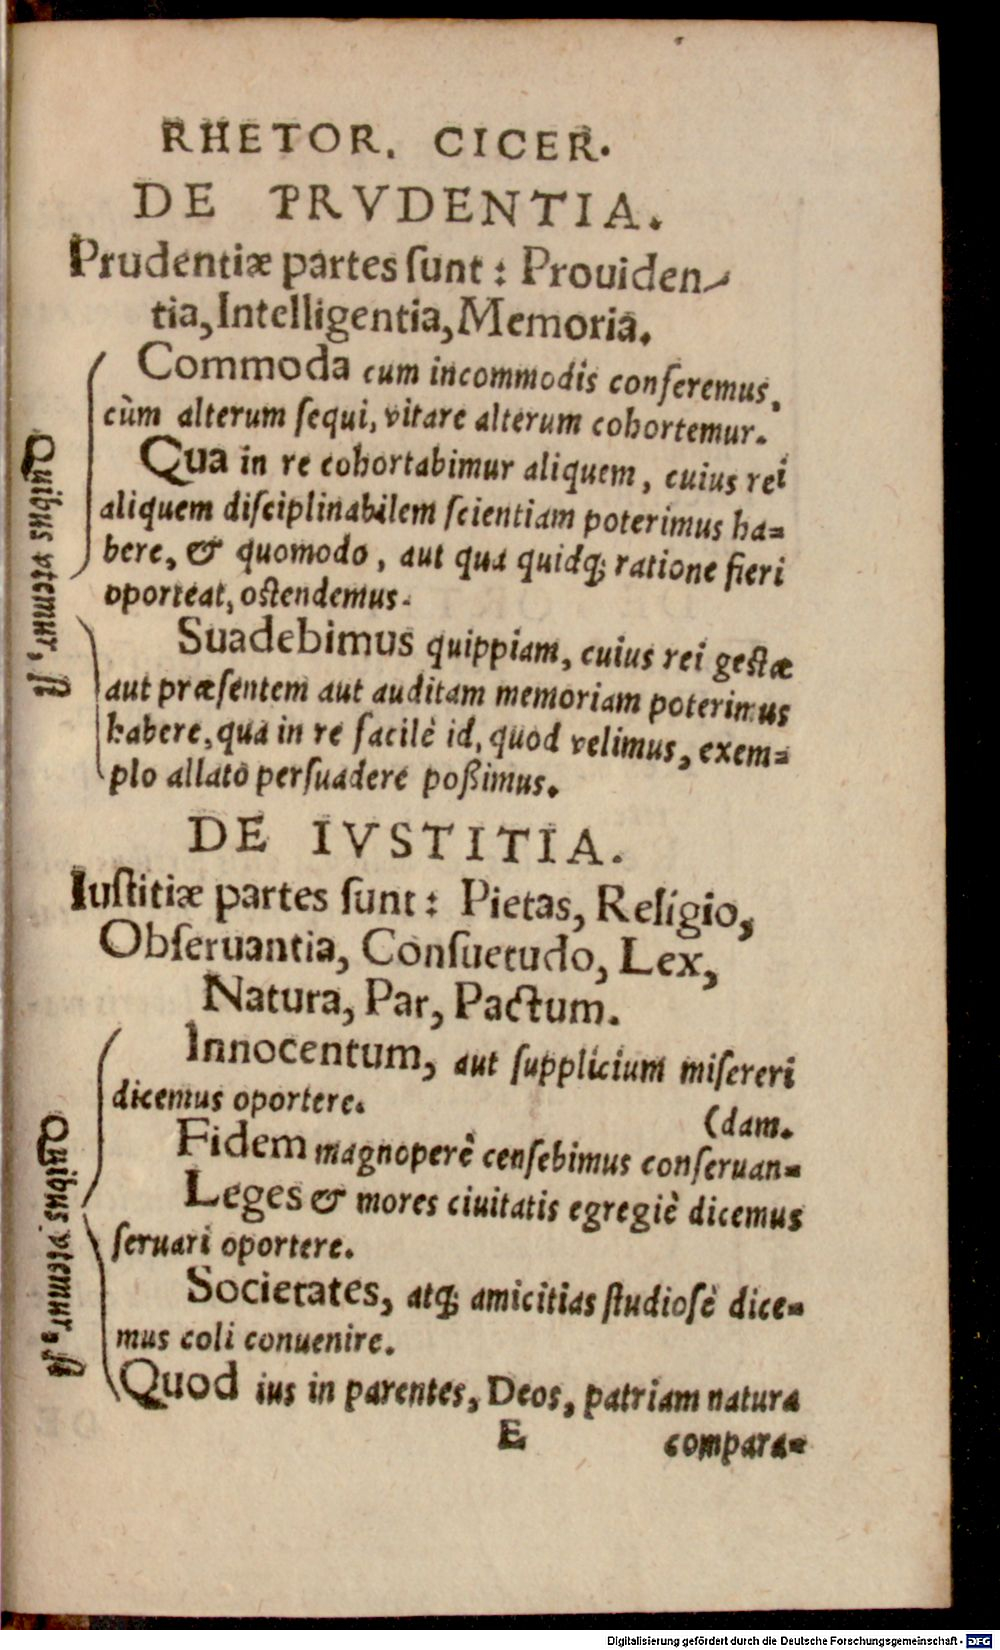 RHETOR. CICER.
DE PRVDENTIA.
Prudentiæ partes ſunt: Prouiden-
tia, Intelligentia, Memoria.
Commoda cum incommodis conferemus,
cùm alterum ſequi, vitare alterum cohortemur.
Qua in re cohortabimur aliquem, cuius rei
aliquem diſciplinabilem ſcientiam poterimus ha=
bere, & quomodo, aut qua quidq; ratione fieri
oporteat, oſtendemus.
Quibus vtemur, ſi
Suadebimus quippiam, cuius rei geſtæ
aut præſentem aut auditam memoriam poterimus
habere, qua in re facilè id, quod velimus, exem=
plo allato perſuadere poßimus.
DE IVSTITIA.
Iuſtitiæ partes ſunt: Pietas, Religio,
Obſeruantia, Conſuetudo, Lex,
Natura, Par, Pactum.
Innocentum, aut ſupplicium miſereri
dicemus oportere.
(dam.
Fidem magnoperè cenſebimus conſeruan=
Leges & mores ciuitatis egregiè dicemus
ſeruari oportere.
Quibus vtemur, ſi
Societates, atq; amicitias ſtudioſè dice=
mus coli conuenire.
Quod ius in parentes, Deos, patriam natura
E
compara=
Digitalisierung gefördert durch die Deutsche Forschungsgemeinschaft - DFG